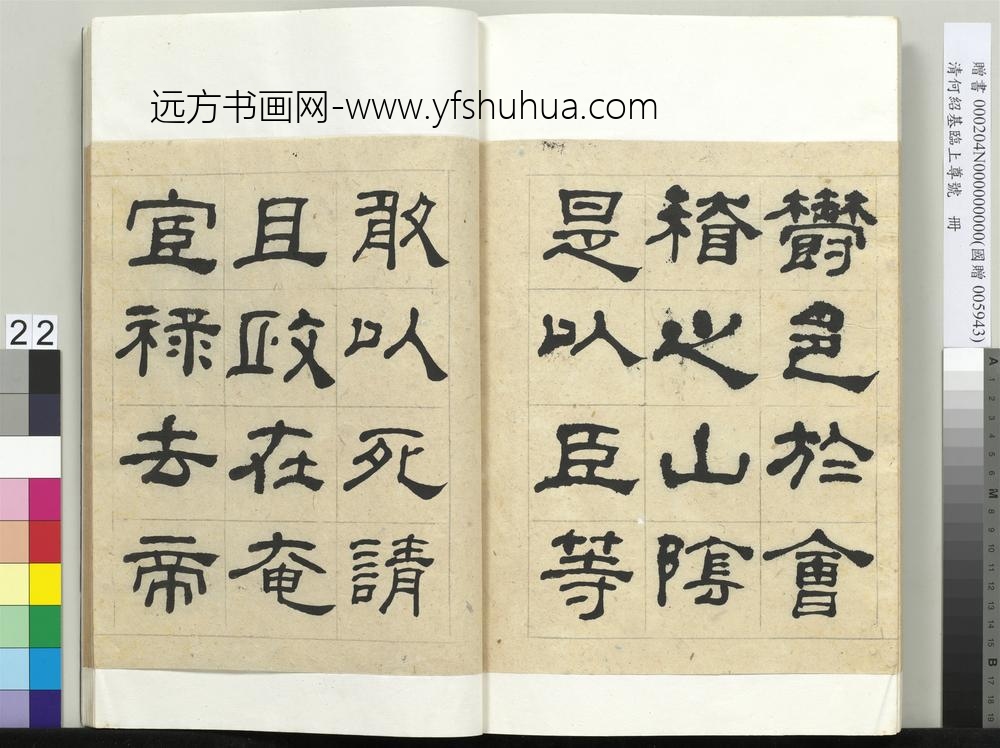 远方书画网-www.yfshuhua.com
贈書 000204N000000000(國贈 005943)
清何紹基臨上尊號 冊
欎邑於會
稽之山陰
是以臣等
敢以死請
且政在奄
宦禄去帝
22
A 1 2 3 4 5 6 M 8 9 10 11 12 13 14 15 B 17 18 19